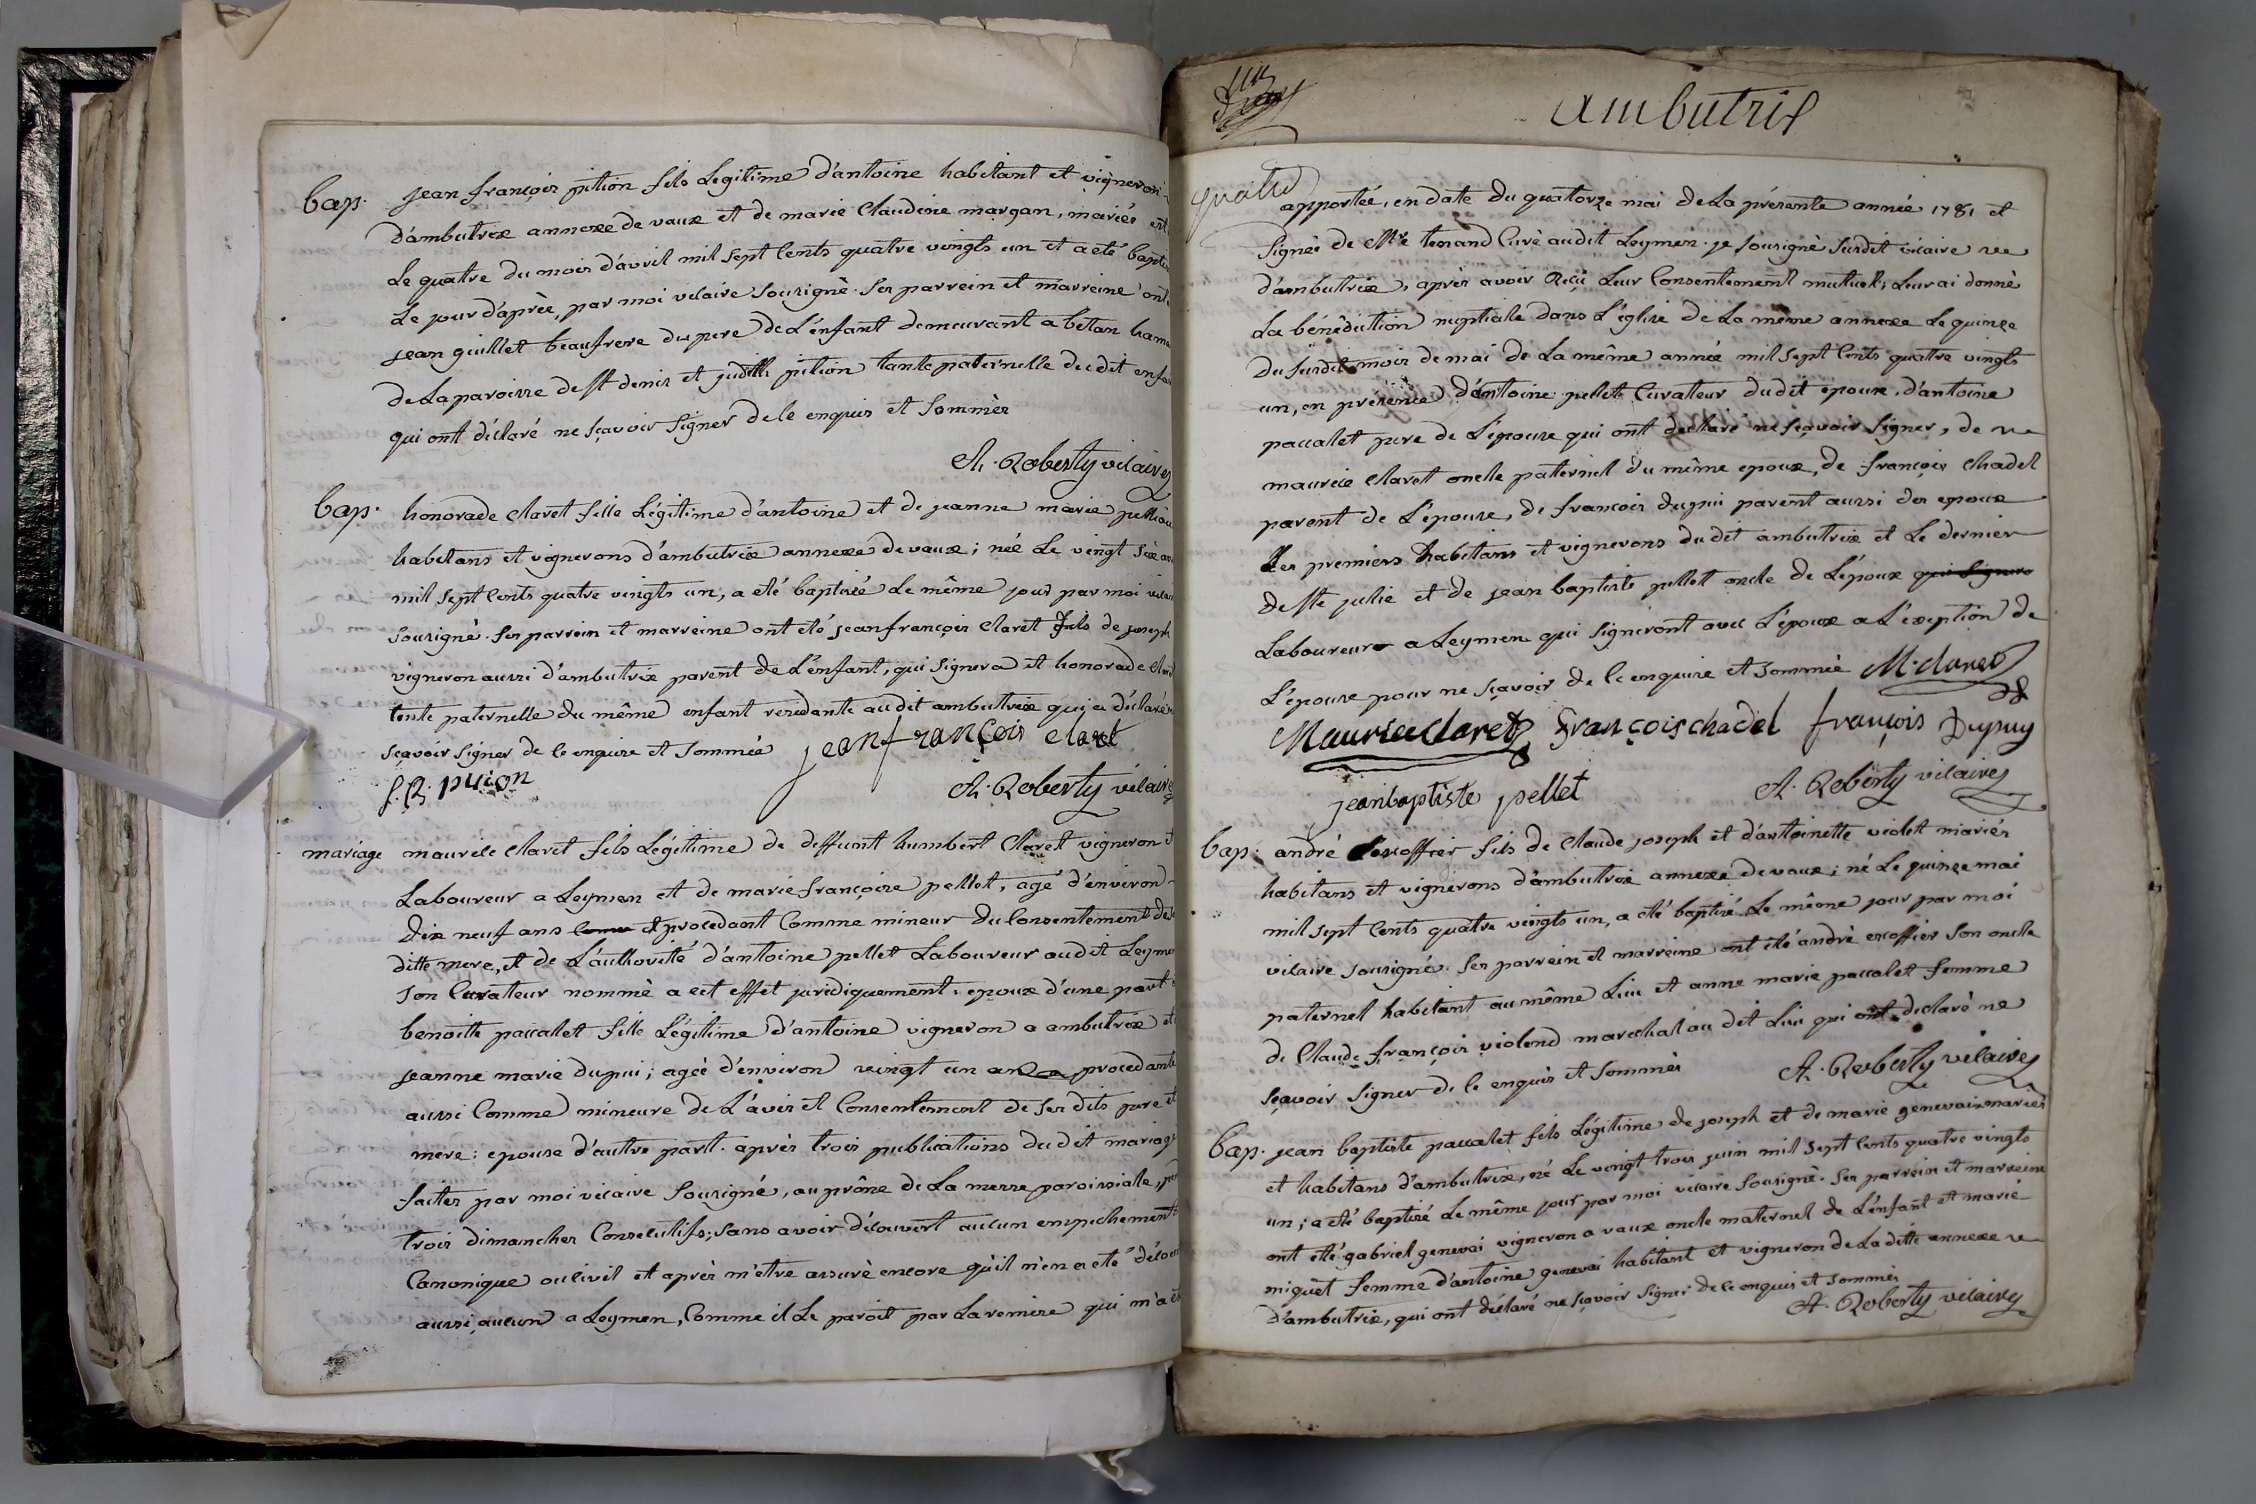 bap. jean françois pition fils Légitime d'antoine habitant et vigneron
d'ambutrix annexe de vaux et de marie Claudine margan, mariés est
Le quatre du mois d'avril mil sept Cents quatre vingts un et a eté
Le jour d'après, par moi vicaire Sousigné. Ses parrein et marreine ont
jean guillet beaufrere du pere de L'enfant demeurant a betan
de La paroisse de St denis et judith pition tante paternelle du dit
qui ont déclaré ne sçavoir Signer de le enquis et Sommés
A. Roberty vicaire
bap. honorade Claret fille Légitime d'antoine et de jeanne marie
habitans et vignerons d'ambutrix annexe de vaux; née Le vingt
mil sept Cents quatre vingts un, a eté baptisée Le même jour par moi
Sousigné. Ses parrein et marreine ont eté jean françois Claret fils de joseph
vigneron aussi d'ambutrix parent de L'enfant, qui Signera et honorade
tente paternelle du même enfant residante au dit ambutrix qui a déclaré
sçavoir Signer de le enquise et Sommée jean françois claret
A. Roberty vicaire
mariage maurice Claret fils Légitime de deffunt humbert Claret vigneron
Laboureur a Leymen et de marie françoise pellet, agé d'environ
dix neuf ans et procedant Comme mineur du Consentement de
ditte mere, et de L'authorité d'antoine pellet Laboureur au dit
son Curateur nommé a cet effet juridiquement: epoux d'une part
benoitte paccalet fille Légitime d'antoine vigneron a ambutrix et
jeanne marie dupui; agée d'environ vingt un procedante
aussi Comme mineure de L'avis et Consentement de ses dits pere et
mere: epouse d'autre part. après trois publications du dit mariage
faites par moi vicaire Sousigné, au prône de La messe paroissialle,
trois dimanches Consecutifs; sans avoir découvert aucun empechement
Canonique ou civil et après m'etre assuré encore qu'il n'en a eté
aussi aucun a Leymen, Comme il Le paroit par La remise qui m'a
ambutrix
quatre
apportée, en date du quatorze mai de La présente année 1781 et
Signée de Mre Curé au dit Leymen. je Sousigné Surdit vicaire
d'ambutrix, après avoir reçu Leur Consentement mutuel, Leur ai donné
La bénédiction nuptiale dans L'église de La même annexe Le quinze
du Surdit mois de mai de La même année mil sept Cents quattre vingts
un, en présence d'antoine pellet Curateur du dit epoux, d'antoine
paccalet pere de L'epouse qui ont declaré ne sçavoir Signer, de
maurice Claret oncle paternel du même epoux, de françois Chadel
parent de L'epouse, de francois dupui parent aussi des epoux
Les premiers habitans et vignerons du dit ambutrix et Le dernier
de Ste julie et de jean baptiste pellet oncle de L'epoux qui Signera
Laboureur a Leymen qui Signeront avec L'epoux a L'exeption de
L'epouse pour ne sçavoir de le enquise et Sommée M. claret
Maurice Claret françois chadel françois Dupuy
jean baptiste pellet A. Roberty vicaire
bap. andré escoffier fils de Claude joseph et d'antoinette violet mariés
habitans et vignerons d'ambutrix annexe de vaux; né Le quinze mai
mil sept Cents quatre vingts un, a eté baptisé Le même jour par moi
vicaire sousigné. Ses parrein et marreine ont eté andré escoffier Son oncle
paternel habitant au même Lieu et anne marie paccalet femme
de Claude françois violend marechal au dit Lieu qui ont declaré ne
sçavoir Signer de le enquis et Sommés A. Roberty vicaire
bap. jean baptiste paccalet fils Légitime de joseph et de marie genevai mariés
et habitans d'ambutrix, né Le vingt trois juin mil Sept Cents quatre vingts
un; a eté baptisé Le même jour par moi vicaire Sousigné. Ses parrein et marreine
ont eté gabriel genevai vigneron a vaux oncle maternel de L'enfant et marie
miguet femme d'antoine genevai habitant et vigneron de La ditte annexe
d'ambutrix, qui ont déclaré ne sçavoir Signer de le enquis et sommés
A. Roberty vicaire